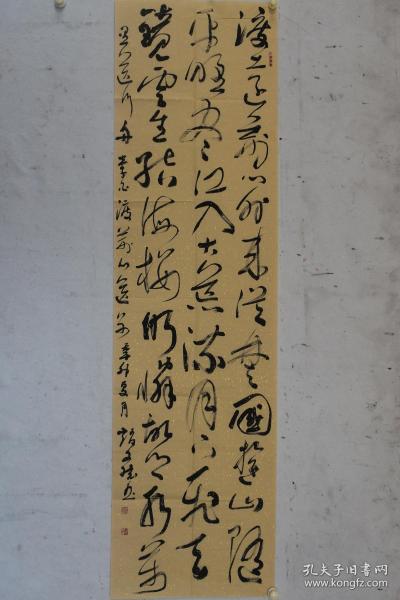 渡遠荆门外来從楚國遊山随
平野尽江入大荒流月下飛天
鏡雲生结海楼仍憐故乡水萬
里送行舟 李白渡荆门送 夏月 书
孔夫子旧书网
www.kongfz.com